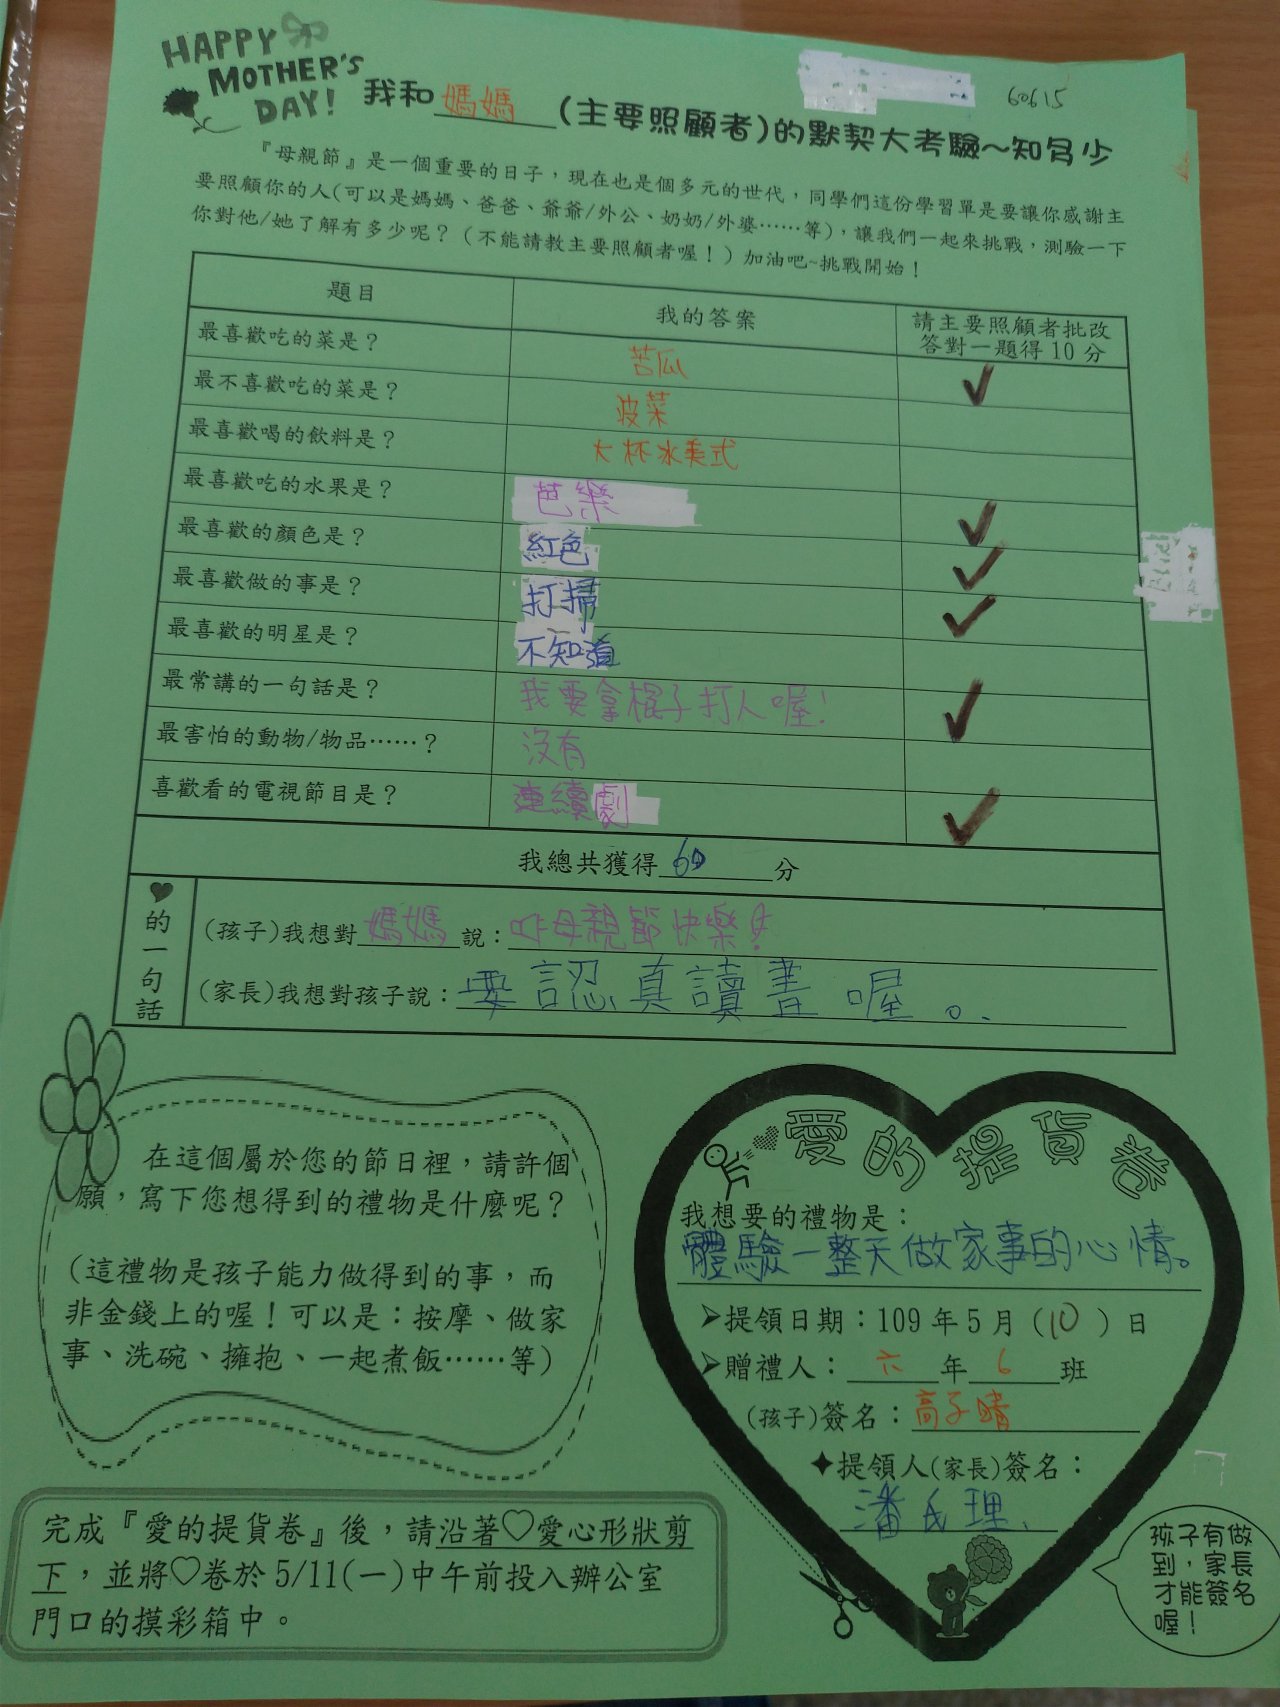 HAPPY
MOTHER'S
DAY!
60615
我和媽媽(主要照顧者)的默契大考驗~知多少
『母親節』是一個重要的日子,現在也是個多元的世代,同學們這份學習單是要讓你感謝主
要照顧你的人(可以是媽媽、爸爸、爺爺/外公、奶奶/外婆……等),讓我們一起來挑戰,測驗一下
你對他/她了解有多少呢?(不能請教主要照顧者喔!)加油吧~挑戰開始!
題目 我的答案 請主要照顧者批改
答對一題得10分
最喜歡吃的菜是? 苦瓜 ✓
最不喜歡吃的菜是? 菠菜
最喜歡喝的飲料是? 大杯冰美式
最喜歡吃的水果是? 芭樂 ✓
最喜歡的顏色是? 紅色 ✓
最喜歡做的事是? 打掃 ✓
最喜歡的明星是? 不知道
最常講的一句話是? 我要拿棍子打人喔! ✓
最害怕的動物/物品……? 沒有
喜歡看的電視節目是? 連續劇 ✓
我總共獲得60分
♥的一句話
(孩子)我想對媽媽說:母親節快樂!
(家長)我想對孩子說:要認真讀書喔。
在這個屬於您的節日裡,請許個
願,寫下您想得到的禮物是什麼呢?
(這禮物是孩子能力做得到的事,而
非金錢上的喔!可以是:按摩、做家
事、洗碗、擁抱、一起煮飯……等)
完成『愛的提貨卷』後,請沿著♡愛心形狀剪
下,並將♡卷於5/11(一)中午前投入辦公室
門口的摸彩箱中。
愛的提貨卷
我想要的禮物是:
體驗一整天做家事的心情。
➤提領日期:109年5月(10)日
➤贈禮人:六年6班
(孩子)簽名:高子晴
✦提領人(家長)簽名:
潘氏理
孩子有做
到,家長
才能簽名
喔!